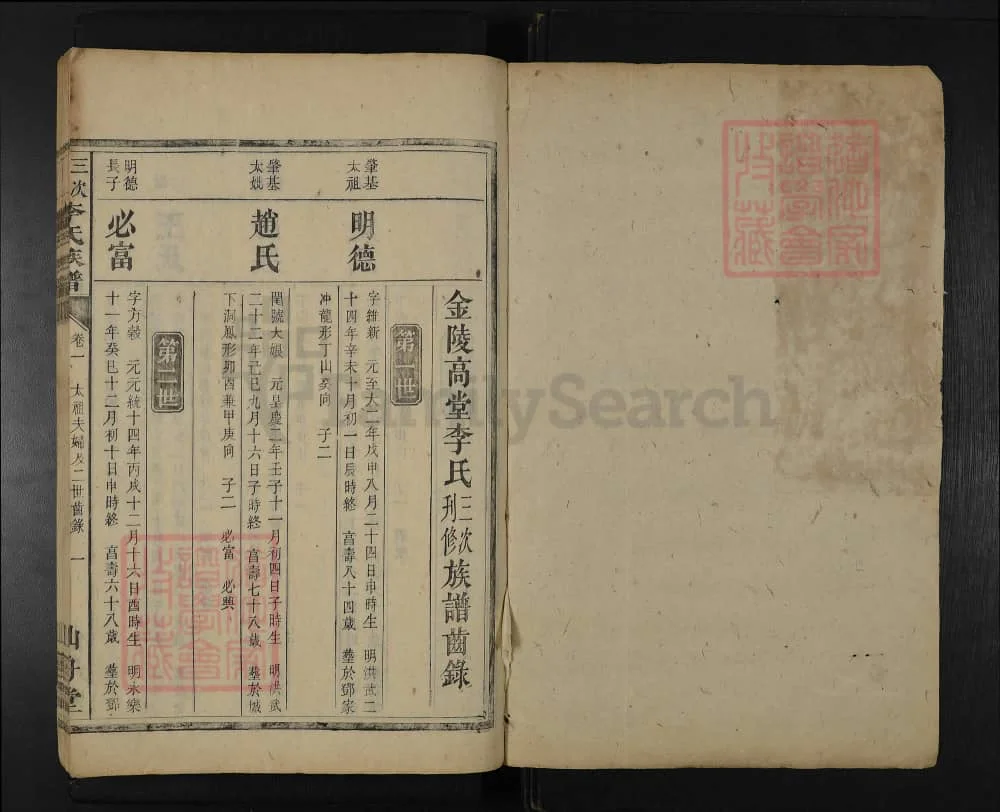 金陵高堂李氏三次刊修族譜齒錄
第一世
肇基太祖
明德
字維新 元至大二年戊申八月二十四日申時生 明洪武二
十四年辛未十月初一日辰時終 享壽八十四歲 塟於鄧家
冲龍形丁山癸向 子二
肇基太妣
趙氏
閨號大娘 元皇慶二年壬子十一月初四日子時生 明洪武
二十二年己巳九月十六日子時終 享壽七十八歲 塟於城
下洞鳳形卯酉兼甲庚向 子二 必富 必興
第二世
明德長子
必富
字方穀 元元統十四年丙戌十二月十六日酉時生 明永樂
十一年癸巳十二月初十日申時終 享壽六十八歲 塟於鄧
三次李氏族譜 卷一 太祖夫婦及二世齒錄 一
譜學會
收藏
FamilySearch